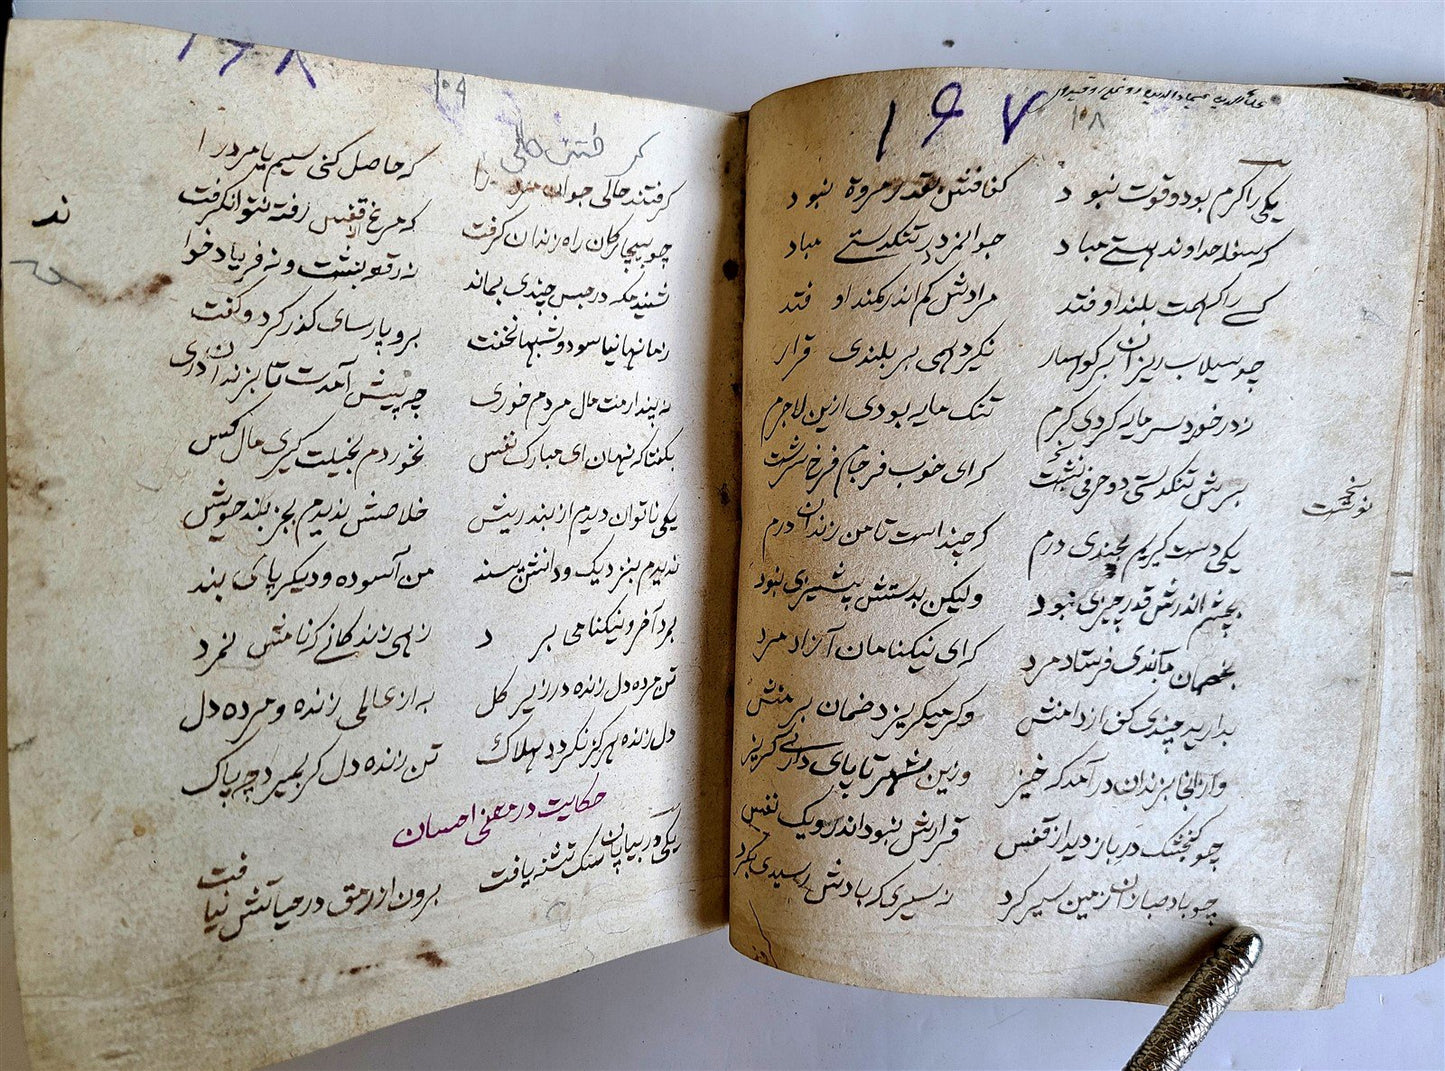 ۱۶۷
۱۰۸
یکی را کرم بود و قوت نبود کفافش بقدر مروة نبود
که سفله خداوند هستی مباد جوانمرد در تنگدستی مباد
کسی را که همت بلند اوفتد مرادش کم اندر کمند اوفتد
چو سیلاب ریزان بر کوهسار نگیرد همی بر بلندی قرار
نه در خورد سرمایه کردی کرم تنک مایه بودی ازین لاجرم
برش تنگدستی دو حرفی نبشت که ای خوب فرجام فرخ سرشت
یکی دست گیرم بچندی درم که چند است تا من زندان درم
بچشم اندرش قدر چیزی نبود ولیکن بدستش پشیزی نبود
بخصمان بندی فرستاد مرد که ای نیکنامان آزاد مرد
بدارید چندی کف از دامنش وگر میگریزد ضمان بر منش
وز آنجا بزندان درآمد که خیز وزین شهر تا پای داری گریز
چو گنجشک در باز دید از قفس قرارش نبود اندرو یک نفس
چو باد صبا زان زمین سیر کرد نه سیری که بادش رسیدی بگرد
نوشت
۱۶۸
۱۰۹
گرفتند حالی جوانمرد را که حاصل کنی سیم یا مرد را
چو بیچارگان راه زندان گرفت که مرغ از قفس رفته نتوان گرفت
شنیدم که در حبس چندی بماند نه رقعه نبشت و نه فریاد خوا
ند
زمانها نیاسود و شبها نخفت برو پارسای گذر کرد و گفت
نه پندارمت مال مردم خوری چه پیش آمدت تا بزندان دری
بگفتا که نهان ای مبارک نفس نخوردم بحیلت گری مال کس
یکی ناتوان دیدم از بند ریش خلاصش ندیدم بجز بند خویش
ندیدم بنزدیک و دانش پسند من آسوده و دیگر پای بند
بمرد آخر و نیکنامی ببرد زهی زندگانی که نامش نمرد
تن مرده دل زنده در زیر گل به از عالمی زنده و مرده دل
دل زنده هرگز نگردد هلاک تن زنده دل گر بمیرد چه باک
حکایت در معنی احسان
یکی در بیابان سگ تشنه یافت برون از رمق در حیاتش نیافت